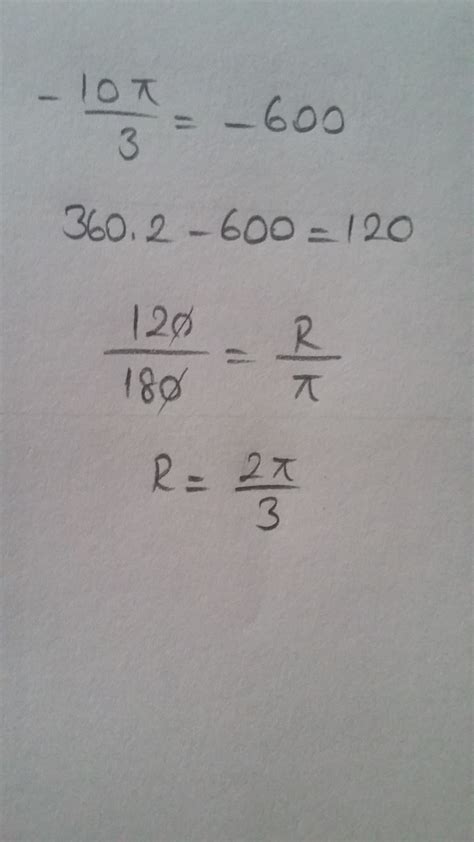 - 10π/3 = -600
360.2 - 600 = 120
120/180 = R/π
R = 2π/3